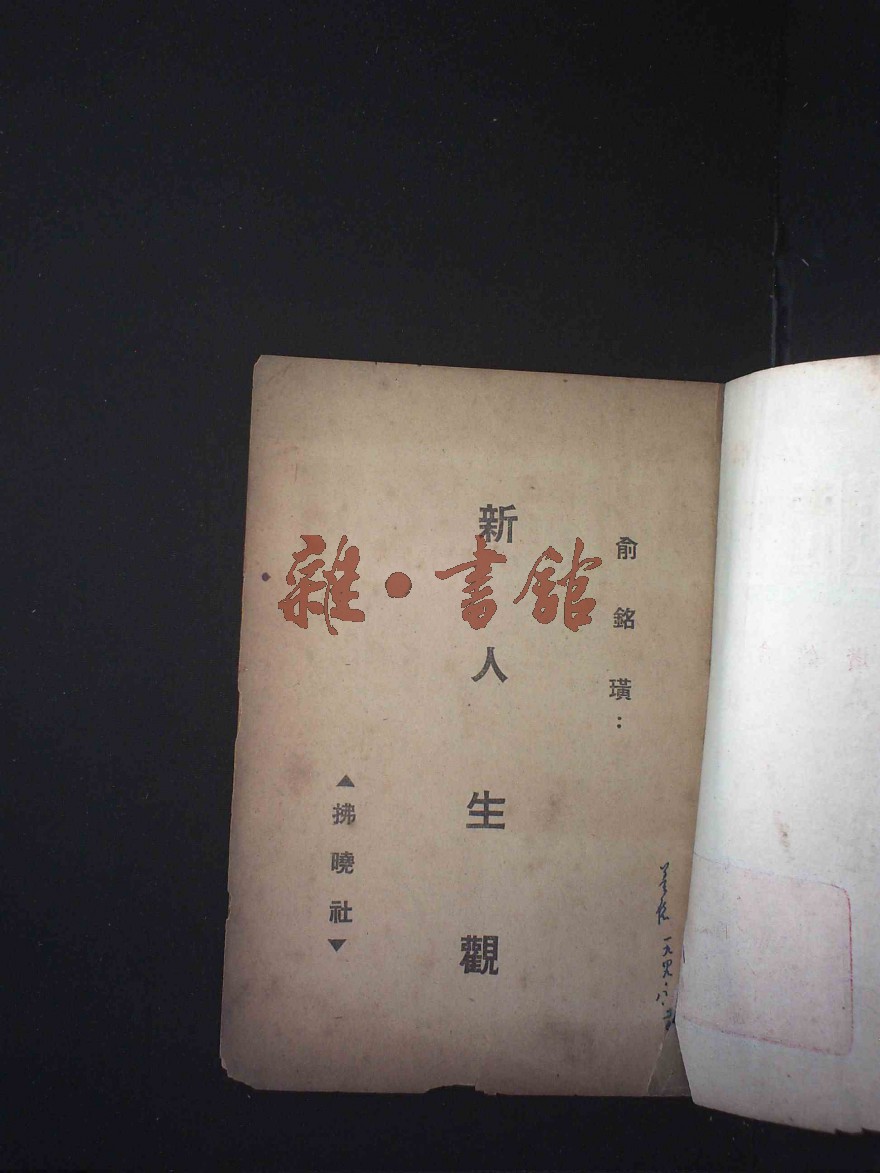 俞銘璜：
新人生觀
▲拂曉社▼
雜·書館
一九四九·六·